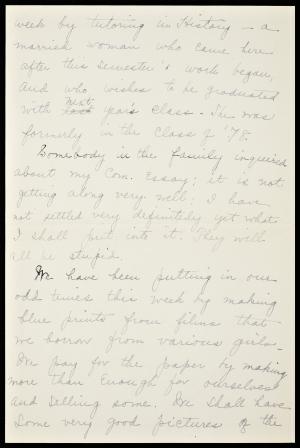 week by tutoring in History – a
married woman who came here
after this semester's work began,
and who wishes to be graduated
with next year's class. She was
formerly in the class of '78.
Somebody in the family inquired
about my Com. Essay; it is not
getting along very well; I have
not settled very definitely yet what
I shall put into it. They will
all be stupid.
We have been putting in our
odd times this week by making
blue prints from films that
we borrow from various girls.
We pay for the paper by making
more than enough for ourselves
and selling some. We shall have
some very good pictures of the